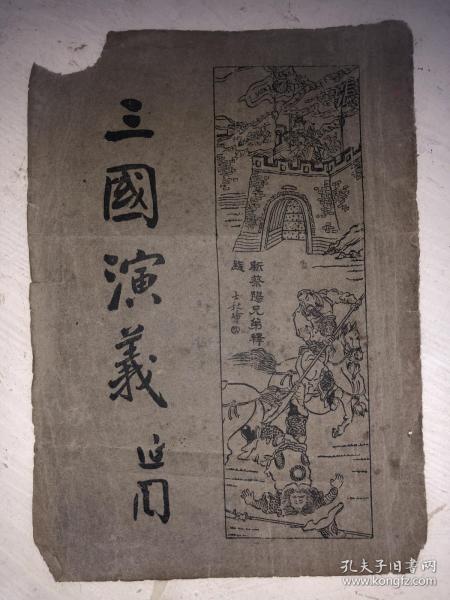 三國演義
張
斬蔡陽兄弟釋
疑
孔夫子旧书网
www.kongfz.com